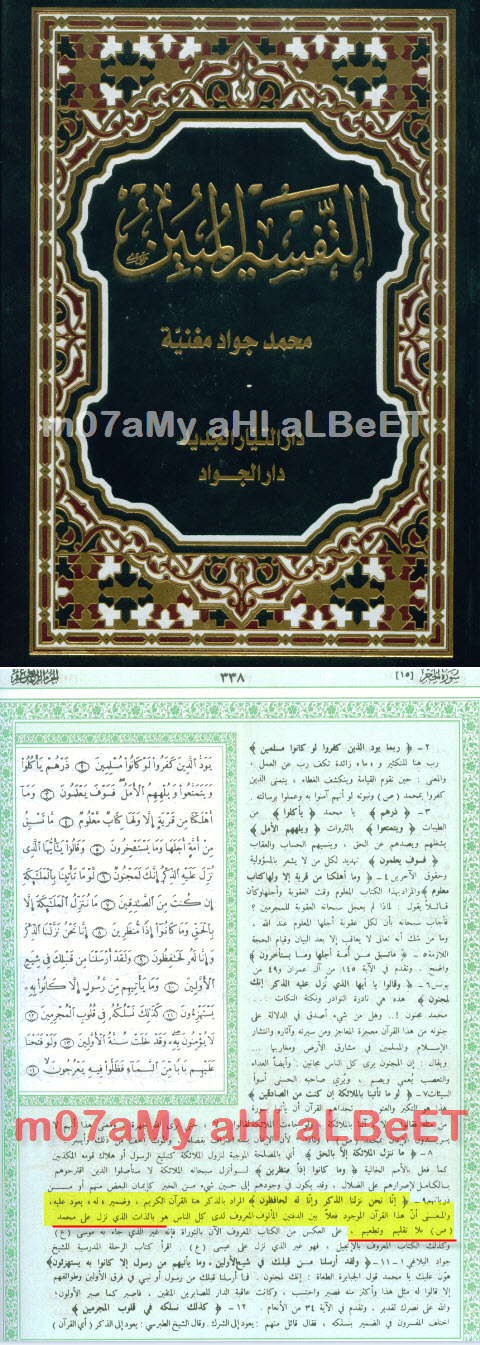 التفسير المبين
محمد جواد مغنية
m07aMy aHl aLBeET
دار التيار الجديد
دار الجواد
سورة الحجر [١٥]
٣٣٨
٢ - ﴿ ربما يود الذين كفروا لو كانوا مسلمين ﴾
رب هنا للتكثير و «ما» زائدة تكف رب عن العمل ،
والمعنى : حين تقوم القيامة وينكشف الغطاء ، يتمنى الذين
كفروا بمحمد (ص) ونبوته لو أنهم آمنوا به وعملوا برسالته .
٣ - ﴿ ذرهم ﴾ يا محمد ﴿ يأكلوا ﴾ من
الطيبات ﴿ ويتمتعوا ﴾ بالثروات ﴿ ويلههم الأمل ﴾
يشغلهم ويصدهم عن الحق ، وينسيهم الحساب والعقاب
﴿ فسوف يعلمون ﴾ تهديد لكل من لا يشعر بالمسؤولية
وحقوق الآخرين ٤ - ﴿ وما أهلكنا من قرية إلا ولها كتاب
معلوم ﴾ والمراد بهذا الكتاب المعلوم وقت العقوبة وأجلها وكأن
قائلاً يقول : لماذا لم يعجل سبحانه العقوبة للمجرمين ؟
فأجاب سبحانه بأن لكل عقوبة أجلها المعلوم عند الله ،
وما من شك أنه تعالى لا يعاقب إلا بعد البيان وقيام الحجة
اللازمة ٥ - ﴿ ما تسبق من أمة أجلها وما يستأخرون ﴾
واضح . وتقدم في الآية ١٤٥ من آل عمران و ٤٩ من
يونس ٦ - ﴿ وقالوا يا أيها الذي نزل عليه الذكر إنك
لمجنون ﴾ هذه هي نادرة النوادر ونكتة النكات ...
محمد مجنون ! .. وهل من شيء أصدق في الدلالة على
جنونه من هذا القرآن معجزة المعاجز ومن سيرته وآثاره وانتشار
الإسلام والمسلمين في مشارق الأرض ومغاربها ...
ويقال : إن المجنون يرى كل الناس مجانين . وأيضاً العداء
والتعصب يُعمي ويصم ، ويري صاحبه الحسنى أسوأ
السيئات ٧ - ﴿ لو ما تأتينا بالملائكة إن كنت من الصادقين ﴾
يَوَدُّ الَّذِينَ كَفَرُوا لَوْ كَانُوا مُسْلِمِينَ ﴿٢﴾ ذَرْهُمْ يَأْكُلُوا
وَيَتَمَتَّعُوا وَيُلْهِهِمُ الْأَمَلُ فَسَوْفَ يَعْلَمُونَ ﴿٣﴾ وَمَا
أَهْلَكْنَا مِن قَرْيَةٍ إِلَّا وَلَهَا كِتَابٌ مَّعْلُومٌ ﴿٤﴾ مَّا تَسْبِقُ
مِنْ أُمَّةٍ أَجَلَهَا وَمَا يَسْتَأْخِرُونَ ﴿٥﴾ وَقَالُوا يَا أَيُّهَا الَّذِي
نُزِّلَ عَلَيْهِ الذِّكْرُ إِنَّكَ لَمَجْنُونٌ ﴿٦﴾ لَّوْ مَا تَأْتِينَا بِالْمَلَائِكَةِ
إِن كُنتَ مِنَ الصَّادِقِينَ ﴿٧﴾ مَا نُنَزِّلُ الْمَلَائِكَةَ إِلَّا
بِالْحَقِّ وَمَا كَانُوا إِذًا مُّنظَرِينَ ﴿٨﴾ إِنَّا نَحْنُ نَزَّلْنَا الذِّكْرَ
وَإِنَّا لَهُ لَحَافِظُونَ ﴿٩﴾ وَلَقَدْ أَرْسَلْنَا مِن قَبْلِكَ فِي شِيَعِ
الْأَوَّلِينَ ﴿١٠﴾ وَمَا يَأْتِيهِم مِّن رَّسُولٍ إِلَّا كَانُوا بِهِ
يَسْتَهْزِءُونَ ﴿١١﴾ كَذَٰلِكَ نَسْلُكُهُ فِي قُلُوبِ الْمُجْرِمِينَ ﴿١٢﴾
لَا يُؤْمِنُونَ بِهِ وَقَدْ خَلَتْ سُنَّةُ الْأَوَّلِينَ ﴿١٣﴾ وَلَوْ فَتَحْنَا
عَلَيْهِم بَابًا مِّنَ السَّمَاءِ فَظَلُّوا فِيهِ يَعْرُجُونَ ﴿١٤﴾
m07aMy aHl aLBeET
٨ - ﴿ ما ننزل الملائكة إلا بالحق ﴾
كما فعل بالأمم الخالية ﴿ وما كانوا إذاً منظرين ﴾
ذرياتهم ٩ - ﴿ إنا نحن نزلنا الذكر وإنا له لحافظون ﴾ المراد بالذكر هنا القرآن الكريم ، وضمير «له» يعود عليه ،
والمعنى أن هذا القرآن الموجود فعلاً بين الدفتين المألوف المعروف لدى كل الناس هو بالذات الذي نزل على محمد
(ص) بلا تقليم وتطعيم ، على العكس من الكتاب المعروف الآن بالتوراة فإنه غير الذي جاء به موسى (ع)
وكذلك الكتاب المعروف بالإنجيل ، فهو غير الذي نزل على عيسى (ع) . اقرأ كتاب الرحلة المدرسية للشيخ
جواد البلاغي ١٠ - ١١ - ﴿ ولقد أرسلنا من قبلك في شيع الأولين ، وما يأتيهم من رسول إلا كانوا به يستهزئون ﴾
هوّن عليك يا محمد قول الجبابرة الطغاة : إنك لمجنون . فما أرسلنا قبلك من رسول أو نبي في فرق الأولين وطوائفهم
إلا قالوا له مثل هذا وأكثر منه فصبر واحتسب ، وكانت عاقبة الدار للصابرين المتقين ، فاصبر كما صبر الأولون؛
والله على نصرك لقدير . وتقدم في الآية ٣٤ من الأنعام . ١٢ - ﴿ كذلك نسلكه في قلوب المجرمين ﴾
اختلف المفسرون في الضمير بنسلكه ، فقال قائل منهم : يعود إلى الشرك . وقال الشيخ الطبرسي : يعود إلى الذكر ( أي القرآن )